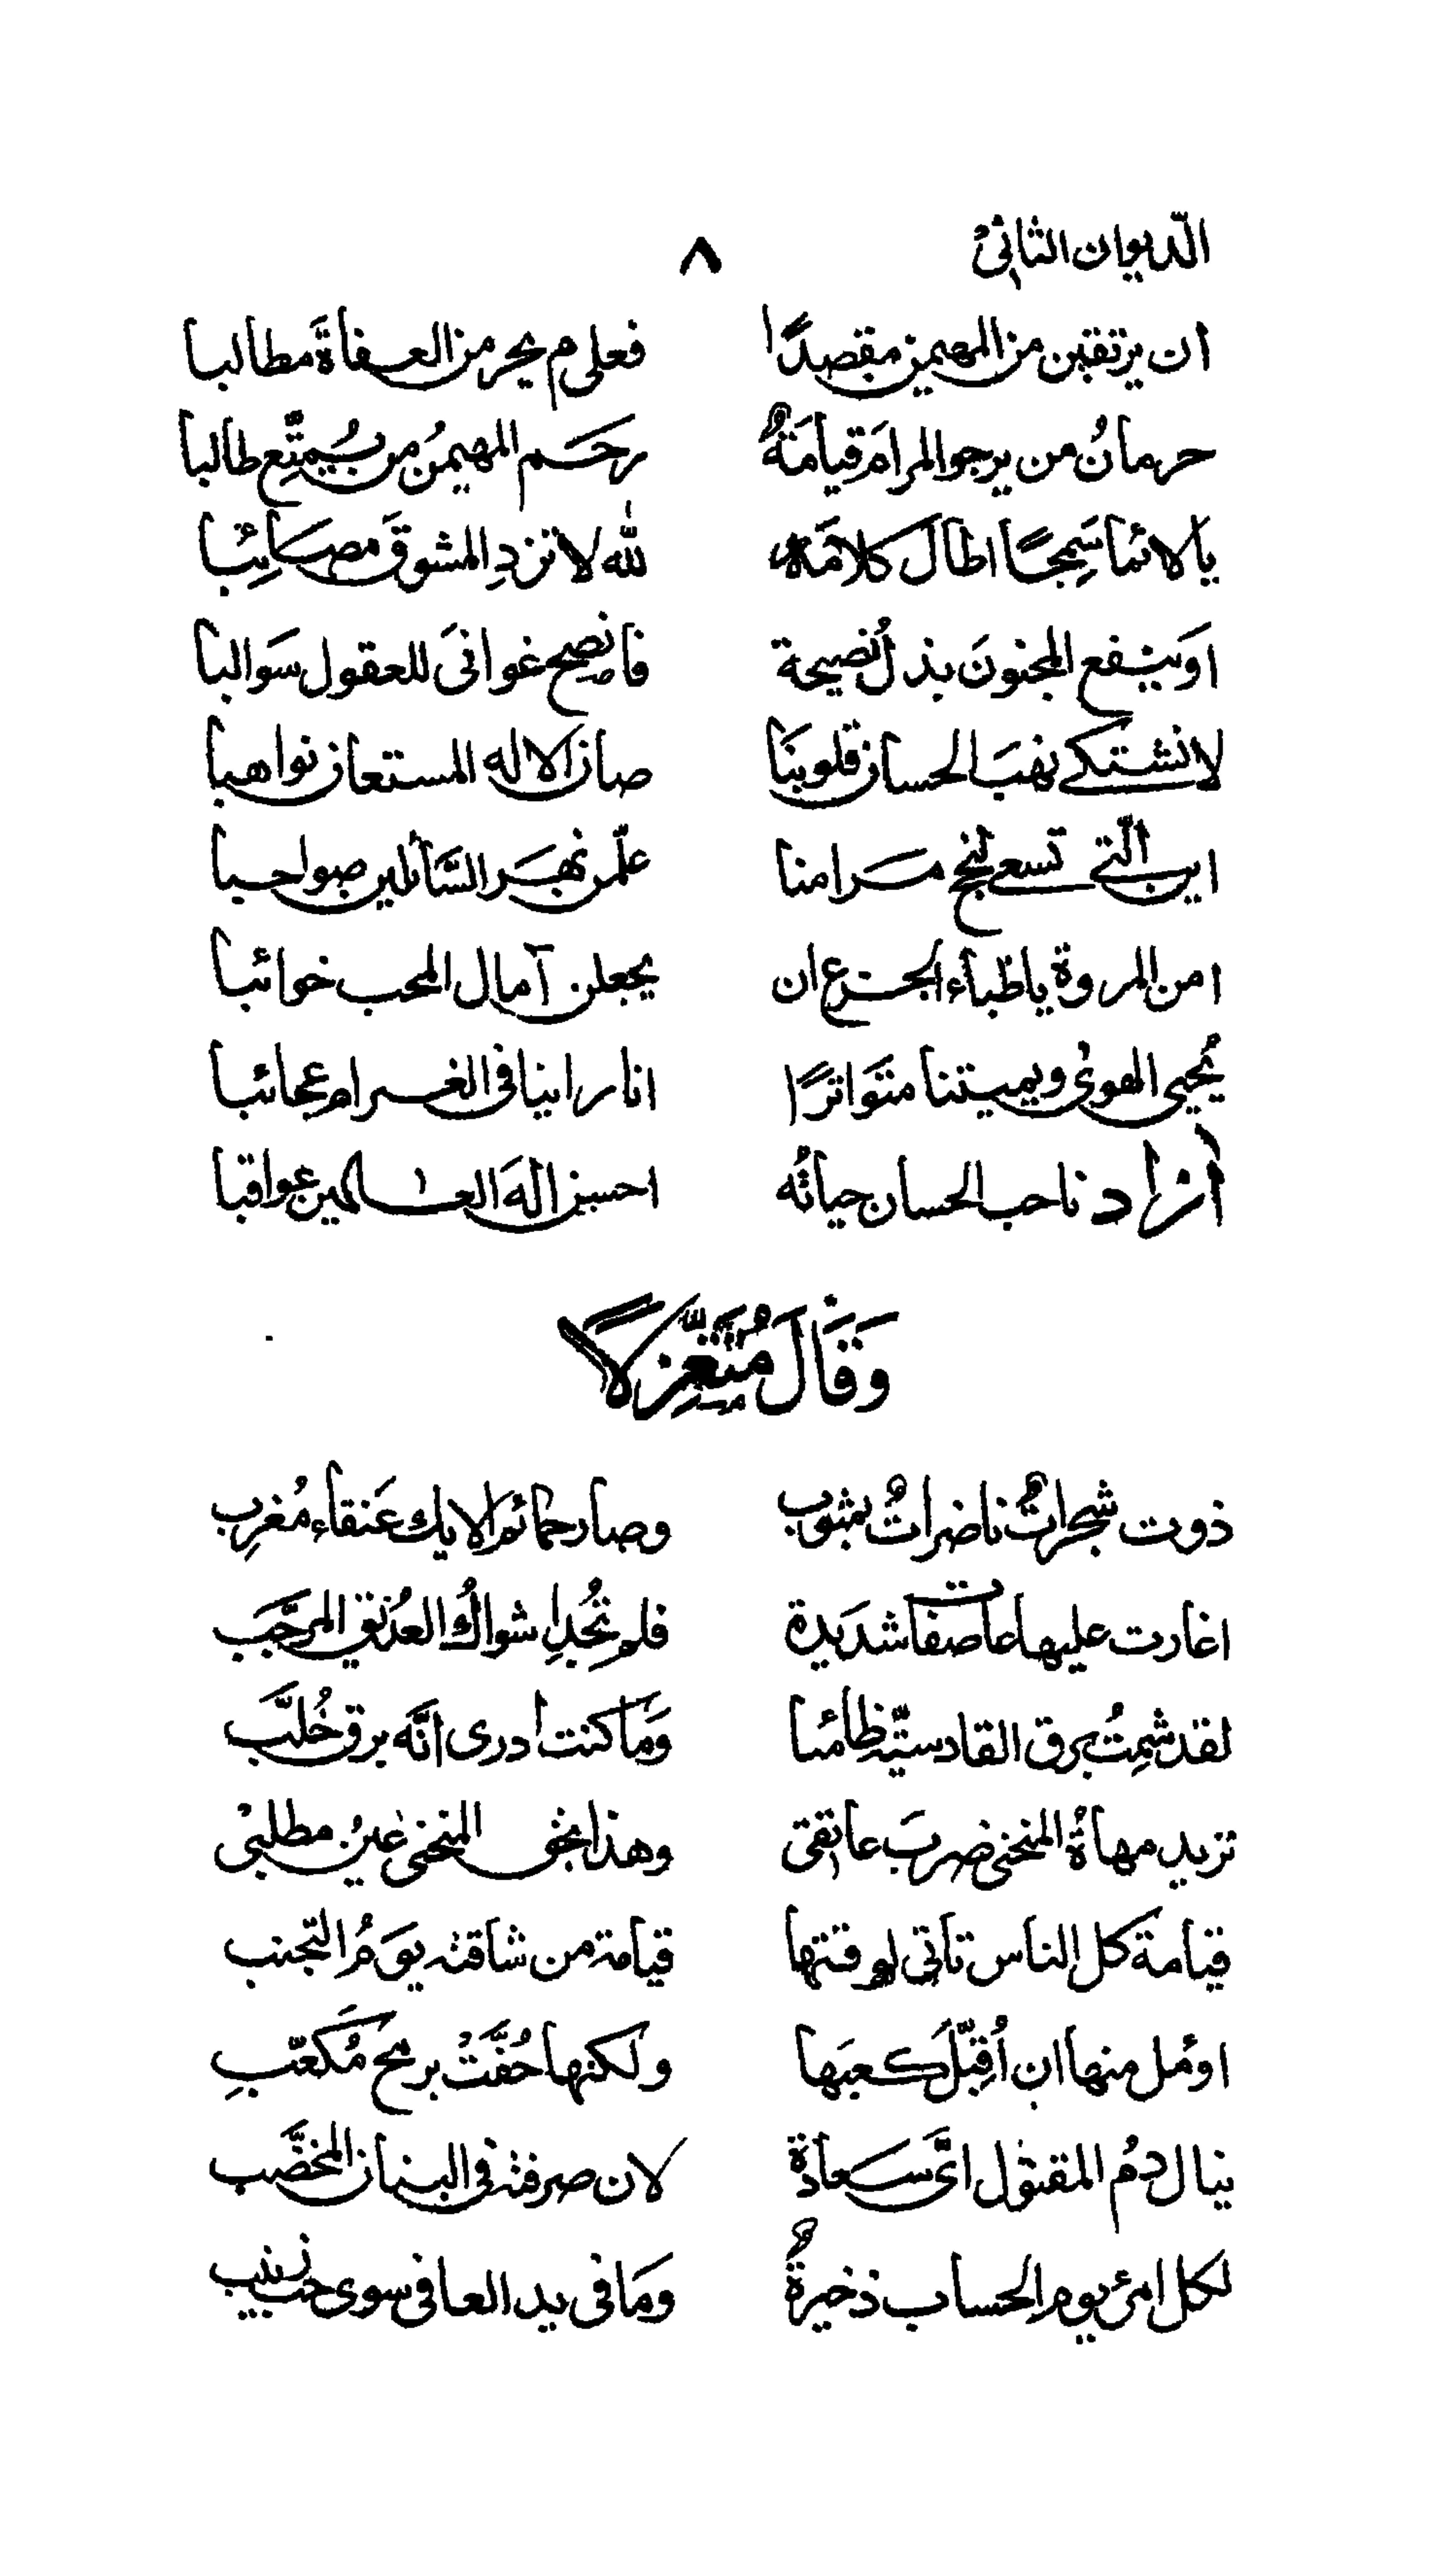 الدیوان الثانی ٨
ان یرتقبن من المهیمن مقصدًا فعلی م یحرمن العفاةَ مطالبا
حرمانُ من یرجو المرامَ قیامَةٌ رحَم المهیمنُ من یُمتِّع طالبا
یا لائما سَمِجًا اطالَ کلامَهُ للّٰه لا تزدِ المشوقَ مصَائِبا
اوَ ینفع المجنونَ بذلُ نصیحة فانصح غوانیَ للعقول سَوالبا
لا نشتکی نهبَ الحسان قلوبنَا صان الاله المستعان نواهبا
این الّتی تسعی لنجح مَرامنا علّمن نهَر السَّائلین صواحبا
امن المروة یا ظباء الجزع ان یجعلن آمال المحب خوائبا
یُحیی الهوٰی ویمیتنا متَواترًا انا راینا فی الغرام عجائبا
آزاد ناحب الحسان حیاتُه احسن الٰهَ العٰلمین عواقبا
وَقَالَ مُتَغَزِّلًا
ذوت شجراتٌ ناضراتٌ بیثرب وصار حمائم الایك عَنقاء مُغرِب
اغارت علیها عاصفات شدَیدة فلم تُجدِ اشواكُ العُذیق المرجَّبَ
لقد شِمتُ برق القادسیّة ظامئا وَما کنت ادری انَّه برق خُلَّب
تزید مهاةُ المنحنی ضربَ عاتقی وهذا بحق المنحنی عینُ مطلبیْ
قیامة کل الناس تاتی لوقتها قیامة من شاقته یَومُ التجنب
اوئمل منها ان اُقبِّلَ کعبَها ولکنها حُفَّتْ برمح مُکَعّبِ
ینال دمُ المقتول ایَّ سَعادة لان صرفته فی البنان المخضَّب
لکل امرئ یوم الحساب ذخیرةٌ ومَا فی ید العافی سوی حب زینب